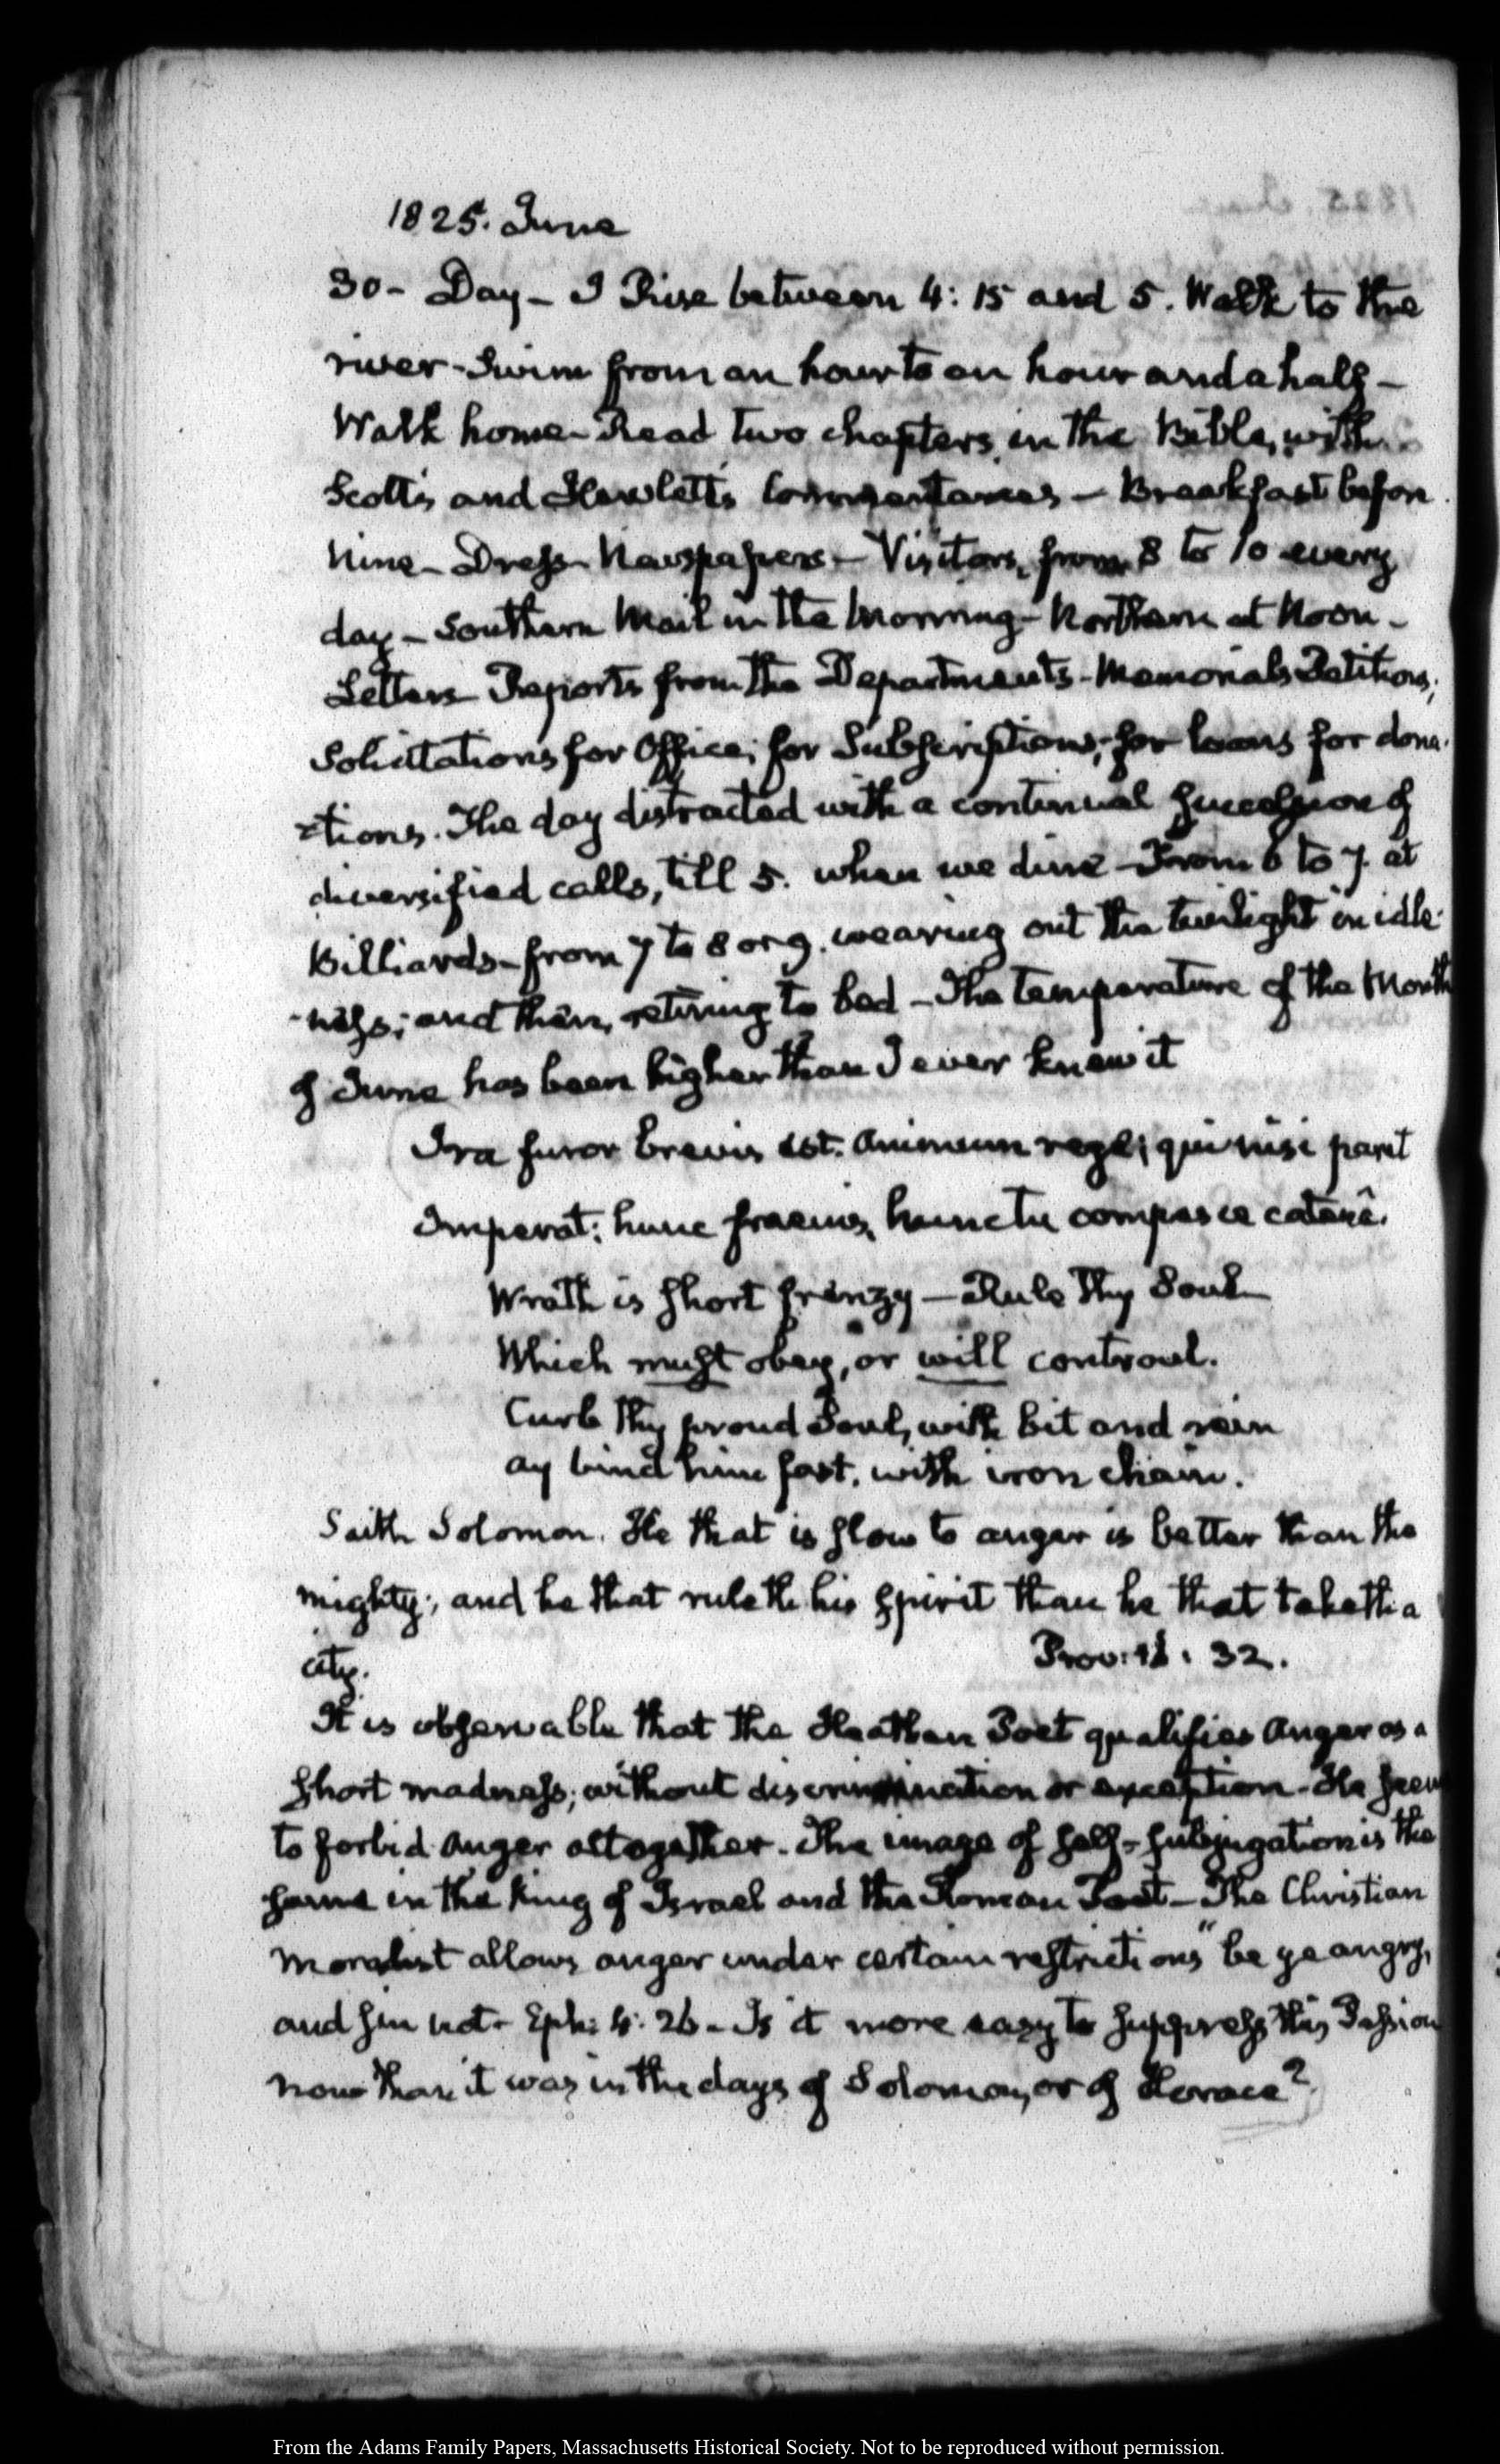 1825. June
30- Day- I Rise between 4:15 and 5. Walk to the
river- Swim from an hour to an hour and a half-
Walk home- Read two chapters, in the Bible, with
Scott's and Hewlett's Commentaries - Breakfast before
nine- Dress- Newspapers- Visitors, from 8 to 10 every
day- Southern Mail in the Morning- Northern at Noon-
Letters- Reports from the Departments- Memorials Petitions,
Solicitations for Office; for Subscriptions; for loans for dona-
-tions. The day distracted with a continual succession of
diversified calls, till 5. when we dine- From 6 to 7. at
Billiards- from 7 to 8 or 9. wearing out the twilight in idle-
-ness; and then, retiring to bed- The temperature of the Month
of June has been higher than I ever knew it
Ira furor brevis est. animum rege; qui nisi paret
Imperat: hunc fraenis, hunc tu compesce catenâ.
Wrath is short frenzy- Rule thy Soul
Which must obey, or will controul.
Curb thy proud Soul, with bit and rein
ay bind him fast, with iron chain.
Saith Solomon. He that is slow to anger is better than the
mighty; and he that ruleth his spirit than he that taketh a
city.
Prov: 32.
It is observable that the Heathen Poet qualifies Anger as a
short madness; without discrimination or exception- He seem
to forbid Anger altogether. The image of self-subjugation is the
same in the King of Israel and the Roman Poet- The Christian
Moralist allows anger under certain restrictions "be ye angry,
and sin not- Eph: 4:26- Is it more easy to suppress this Passion
now than it was in the days of Solomon, or of Horace?
From the Adams Family Papers, Massachusetts Historical Society. Not to be reproduced without permission.